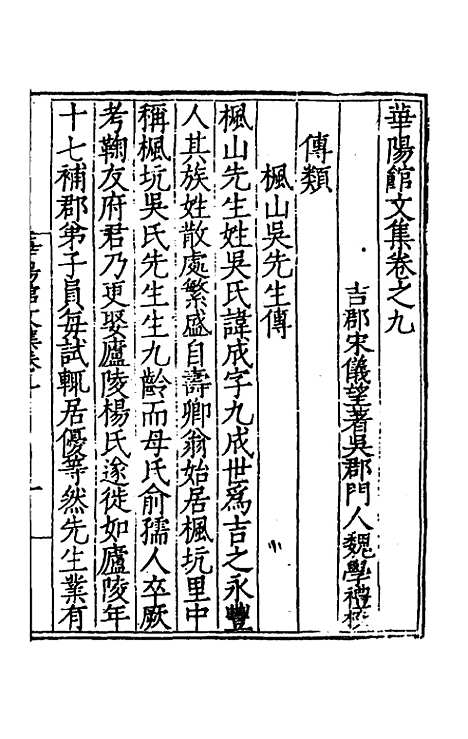 華陽館文集卷之九
吉郡宋儀望著吳郡門人魏學禮
傳類
楓山吳先生傳
楓山先生姓吳氏諱成字九成世爲吉之永豐
人其族姓散處繁盛自壽卿翁始居楓坑里中
稱楓坑吳氏先生生九齡而母氏俞孺人卒厥
考鞠友府君乃更娶廬陵楊氏遂徙如廬陵年
十七補郡弟子員每試輒居優等然先生業有